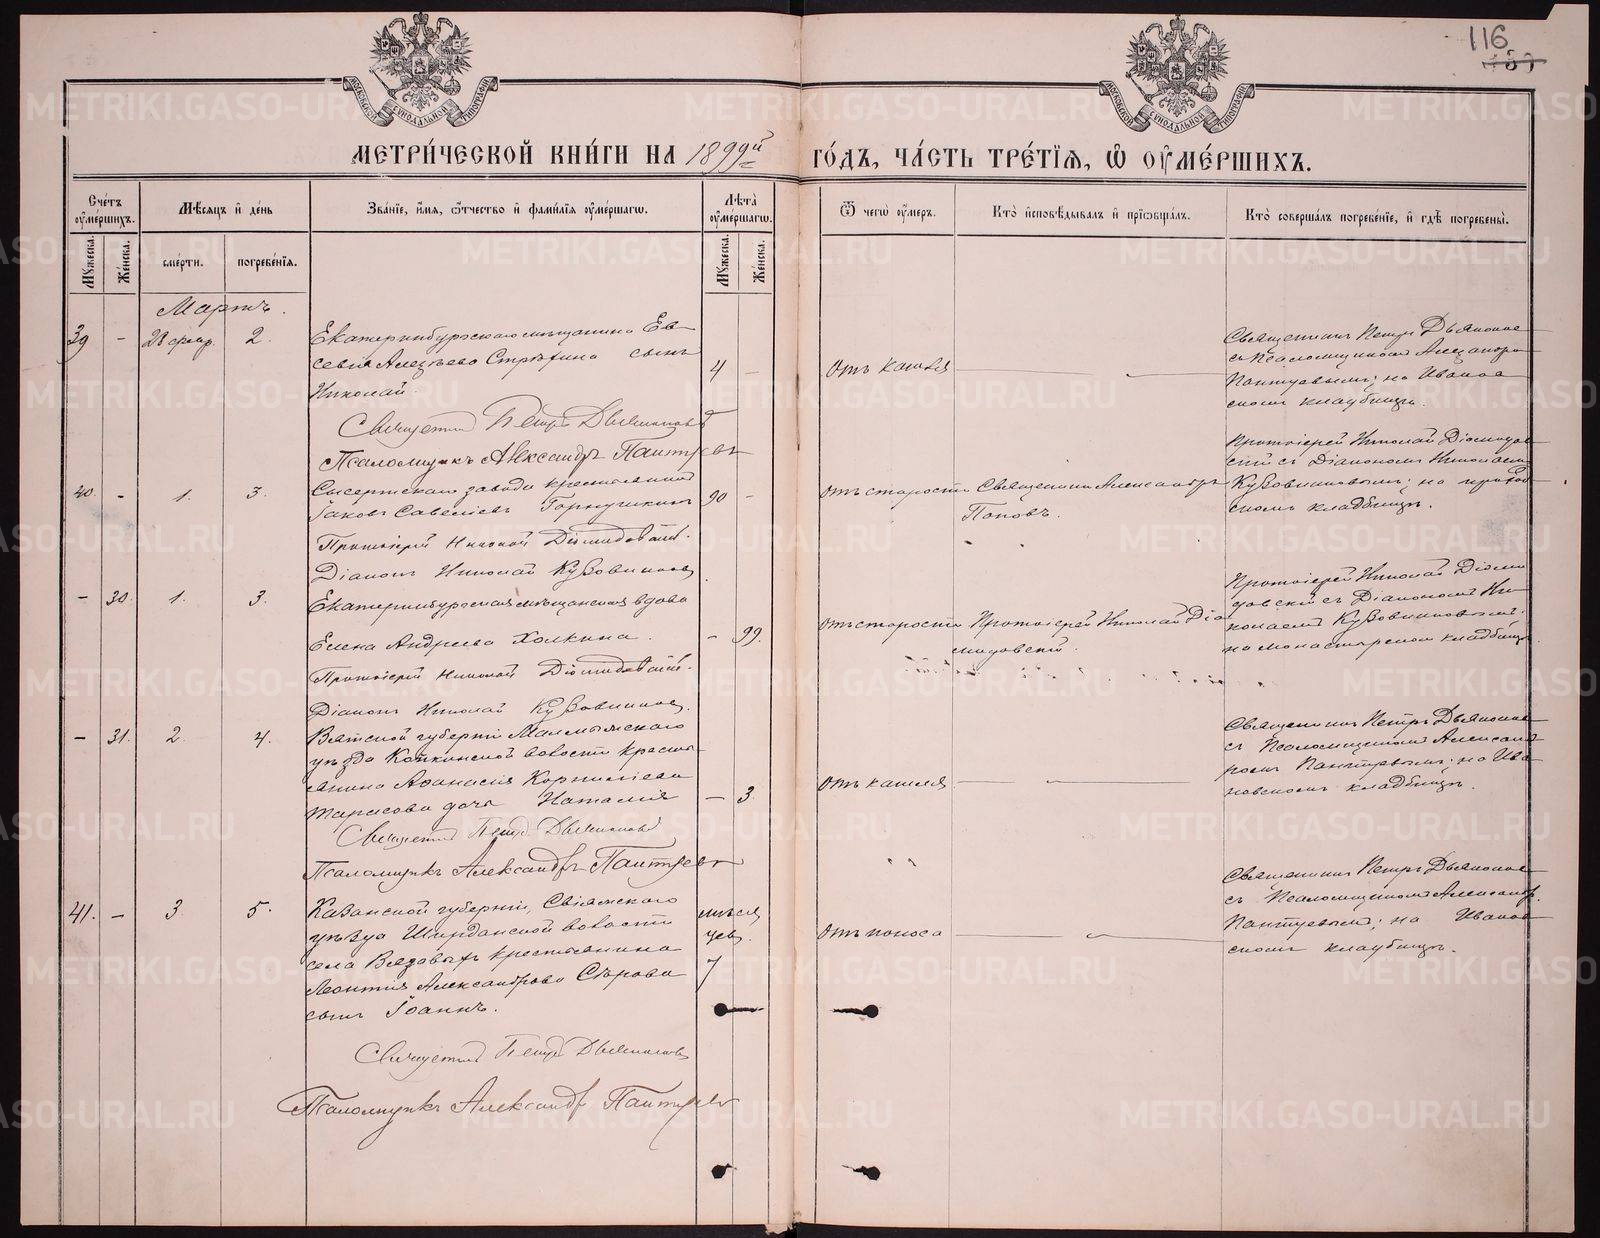 116
МЕТРИЧЕСКОЙ КНИГИ НА 1899й ГОДЪ, ЧАСТЬ ТРЕТІЯ, Ѡ ОУМЕРШИХЪ.
Счетъ оумершихъ.
Мѣсяцъ и день
Званіе, имя, ѿчество и фамилія оумершагѡ.
Лѣта оумершагѡ.
Ѿ чегѡ оумеръ.
Кто исповѣдывалъ и пріобщалъ.
Кто совершалъ погребеніе, и гдѣ погребены.
Мужеска.
Женска.
смерти.
погребенія.
Мужеска.
Женска.
Мартъ.
39 - 28 февр. 2.
Екатеринбургскаго мѣщанина Ев-
севія Алексѣева Стрѣжина сынъ
Николай.
4 -
Отъ кашля
Священникъ Петръ Дьяконов
съ Псаломщикомъ Александро
Пантуевымъ; на Иванов
скомъ кладбищѣ.
Священникъ Петръ Дьяконовъ
Псаломщикъ Александръ Пантуевъ
40. - 1. 3.
Сысертскаго завода крестьянинъ
Іаковъ Савеліевъ
90 -
отъ старости
Священникъ Александръ
Поповъ.
Протоіерей Николай Діомидов
скій съ Діакономъ Николаемъ
Кузовниковымъ; на
скомъ кладбищѣ.
Протоіерей Николай Діомидовскій.
Діаконъ Николай Кузовниковъ
- 30. 1. 3.
Екатеринбургская мѣщанская вдова
Елена Андреева Холкина.
- 99.
отъ старости
Протоіерей Николай Діо
мидовскій.
Протоіерей Николай Діоми
довскій съ Діакономъ Ни
колаемъ Кузовниковымъ.
на монастырском кладбищѣ
Протоіерей Николай Діомидовскій.
Діаконъ Николай Кузовниковъ.
- 31. 2. 4.
Вятской губерніи Малмыжскаго
уѣзда Копкинской волости кресть-
янина Аѳанасія Корниліева
Тарасова дочь Наталія
- 3
Отъ кашля
Священникъ Петръ Дьяконов
съ Псаломщикомъ Александ
ромъ Пантуевымъ; на Ива
новскомъ кладбищѣ.
Священникъ Петръ Дьяконовъ
Псаломщикъ Александръ Пантуевъ
41. - 3. 5.
Казанской губерніи, Свіяжскаго
уѣзда Ширданской волости
села Вязовыхъ крестьянина
Леонтія Александрова Сѣрова
сынъ Іоаннъ.
мѣся
цев.
7
Отъ поноса
Священникъ Петръ Дьяконов
съ Псаломщикомъ Александр.
Пантуевым; на Иванов
скомъ кладбищѣ.
Священникъ Петръ Дьяконовъ
Псаломщикъ Александръ Пантуевъ